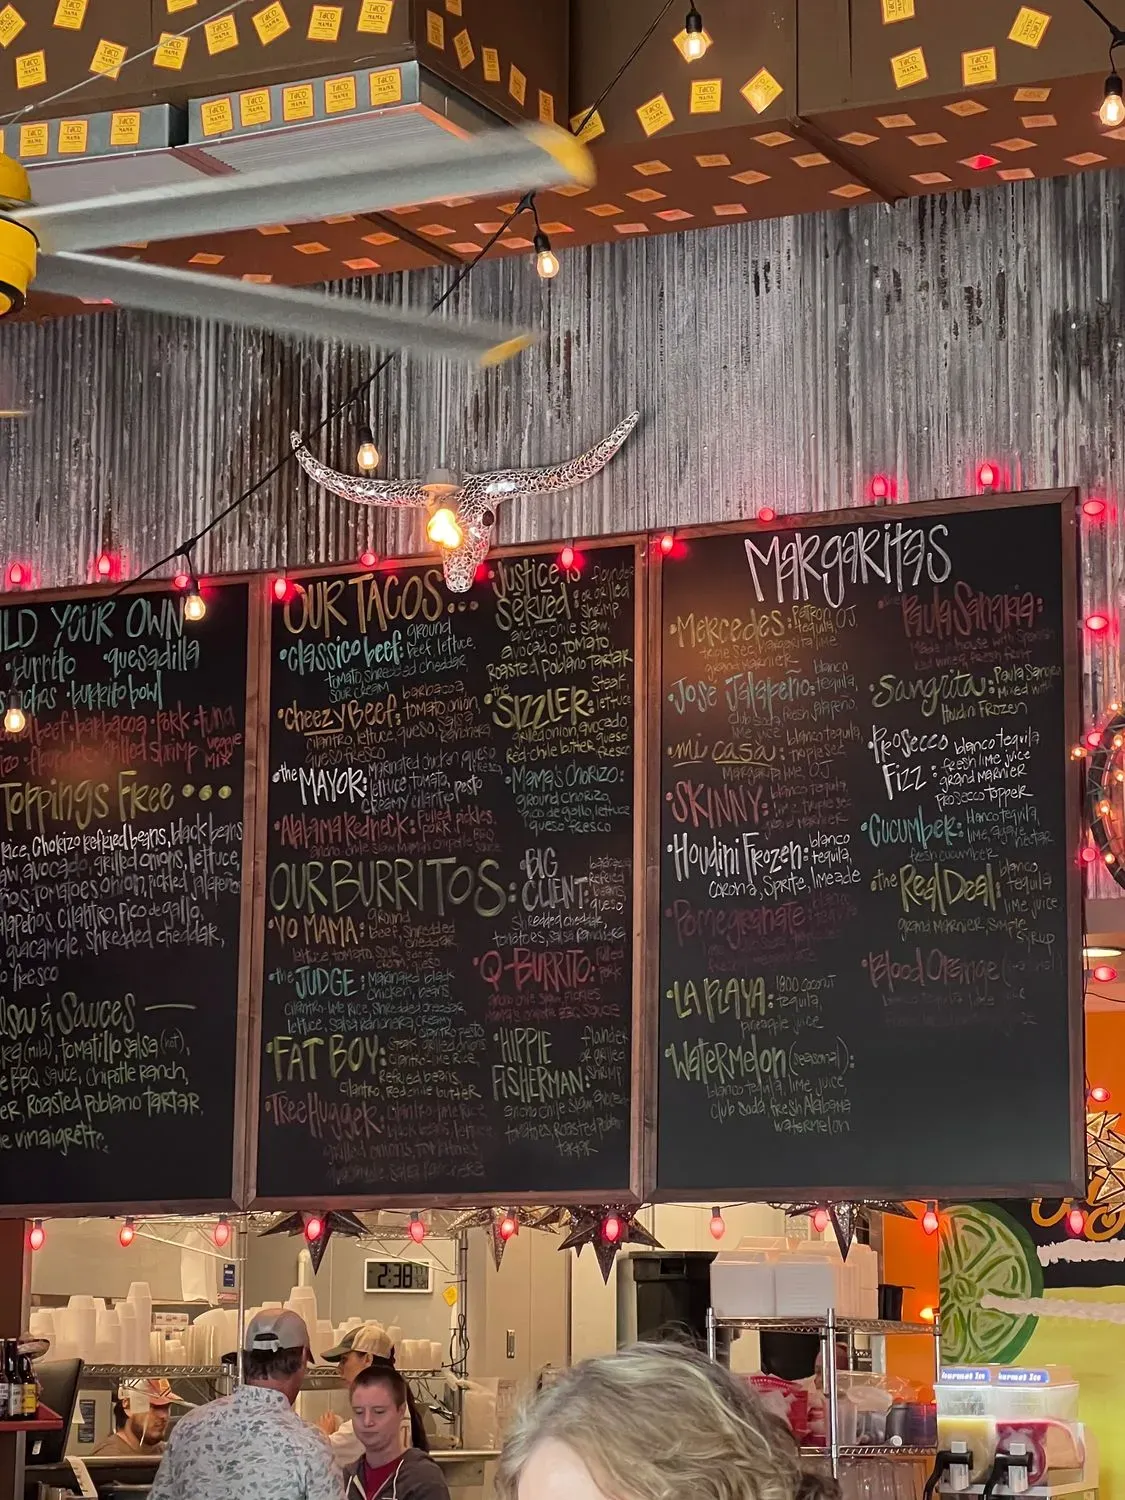 TACO MAMA
ILD YOUR OWN
•burrito •quesadilla
•burrito bowl
beef •barbacoa •pork •tuna
flounder •grilled shrimp veggie mix
Toppings Free •••
Rice, Chorizo refried beans, black beans
avocado, grilled onions, lettuce,
tomatoes, onion, pickled jalapeños
cilantro, Pico de gallo,
guacamole, shredded cheddar,
fresco
& Sauces
(mild), tomatillo salsa (hot),
BBQ sauce, Chipotle Ranch,
Roasted Poblano Tartar,
vinaigrette
OUR TACOS...
•Classico beef: ground
beef, lettuce,
tomato, shredded cheddar
sour cream
•Cheezy Beef: barbacoa,
tomato, onion,
cilantro, lettuce, queso, salsa ranchera
queso fresco
•the MAYOR: marinated chicken, queso
lettuce, tomato,
creamy cilantro pesto
•Alabama Redneck: Pulled pork, pickles,
ancho chile slaw,
Justice is Served: flounder or grilled shrimp,
ancho chile slaw,
avocado, tomato,
Roasted Poblano Tartar
•the SIZZLER: steak, lettuce
grilled onion, avocado,
red-chile butter, queso fresco
•Mama's Chorizo:
ground chorizo,
pico de gallo, lettuce
queso fresco
OUR BURRITOS:
•YO MAMA: ground beef, shredded cheddar,
lettuce, tomato, sour cream
•the JUDGE: Marinated
chicken, black beans
cilantro-lime rice, shredded cheddar
lettuce, salsa ranchera, cream
•FAT BOY: steak, grilled onions
cilantro-lime Rice,
Refried beans,
cilantro, Red-chile butter
•Tree Hugger: cilantro-lime rice
grilled onions, tomatoes
guacamole, salsa ranchera
•BIG CLIENT: barbacoa
refried beans
queso,
shredded cheddar,
tomatoes, salsa ranchera
•Q-BURRITO: Pulled Pork
ancho chile slaw, pickles
BBQ sauce
•HIPPIE FISHERMAN: flounder or grilled shrimp
ancho chile slaw, avocado
tomatoes, Roasted Poblano
tartar
MARGARITAS
•Mercedes: Patron, O.J.
tequila
triple sec, margarita lime
grand marnier
•Jose Jalapeño: blanco tequila,
club soda, fresh jalapeño,
lime
•mi casa: blanco tequila,
triple sec
Margarita lime, OJ
•SKINNY: blanco tequila,
triple sec
•Houdini Frozen: blanco tequila,
corona, Sprite, limeade
•Pomegranate:
•LA PLAYA: 1800 coconut
tequila,
pineapple juice
•Watermelon (seasonal):
blanco tequila, lime juice,
club soda, fresh Alabama
watermelon
Paula Sangria:
Made in house with Spanish
red wine, fresh fruit
•Sangrita: Paula Sangria
Mixed with
Houdini Frozen
•Prosecco Fizz: blanco tequila
fresh lime juice
grand marnier
prosecco topper
•Cucumber: blanco tequila,
lime, agave nectar
fresh cucumber
•the Real Deal: blanco tequila
lime juice,
grand marnier, simple
syrup
•Blood Orange
2:38
Gourmet Ice
Gourmet Ice